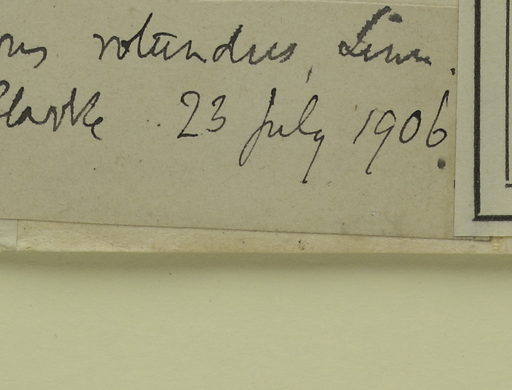 rotundus, Linn.
Clarke 23 July 1906